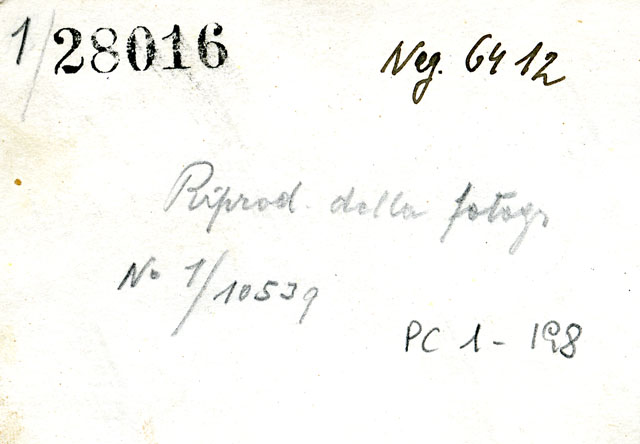 1/28016
Neg. 6412
Riprod. della fotogr
No 1/10539
PC 1-198